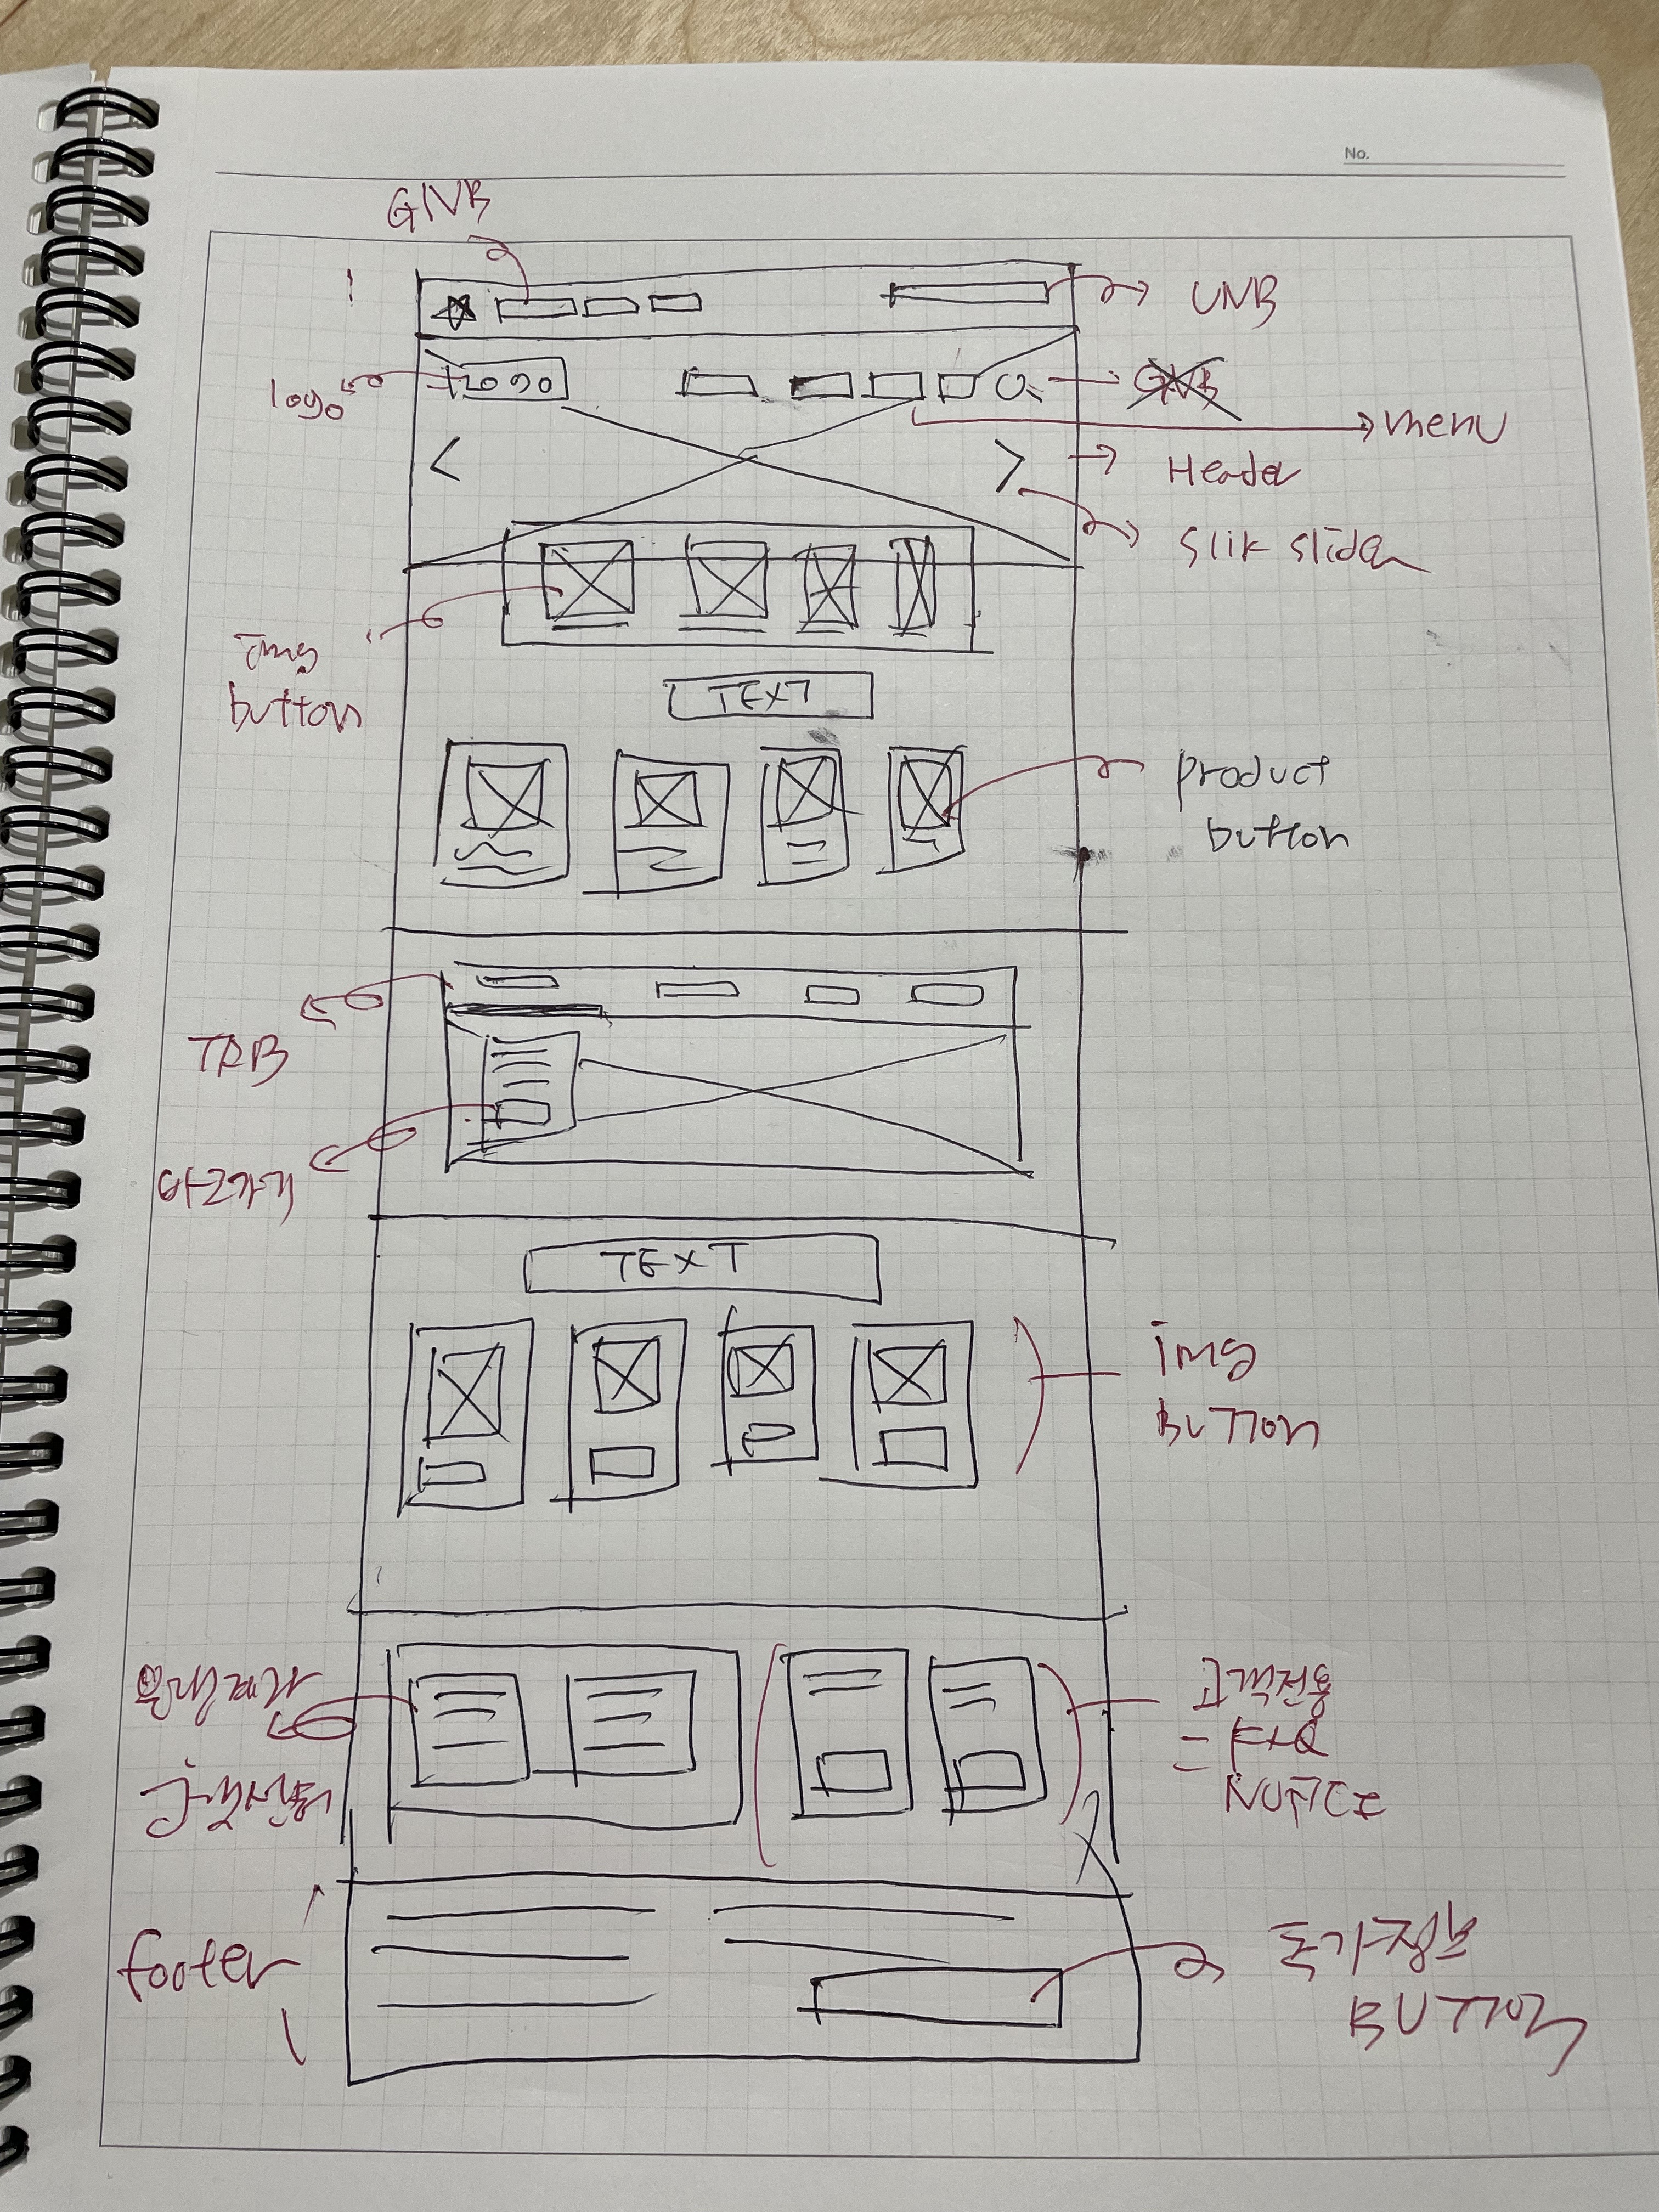 No.
GNB
UNB
logo
logo
GNB
menu
Header
slik slider
img
button
TEXT
product
button
TAB
바로가기
TEXT
img
BUTTON
고객전용
= FAQ
NOTICE
footer
BUTTON